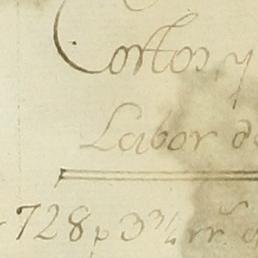 Cortos, y
Labor de
728 p 3 3/4 rr.s